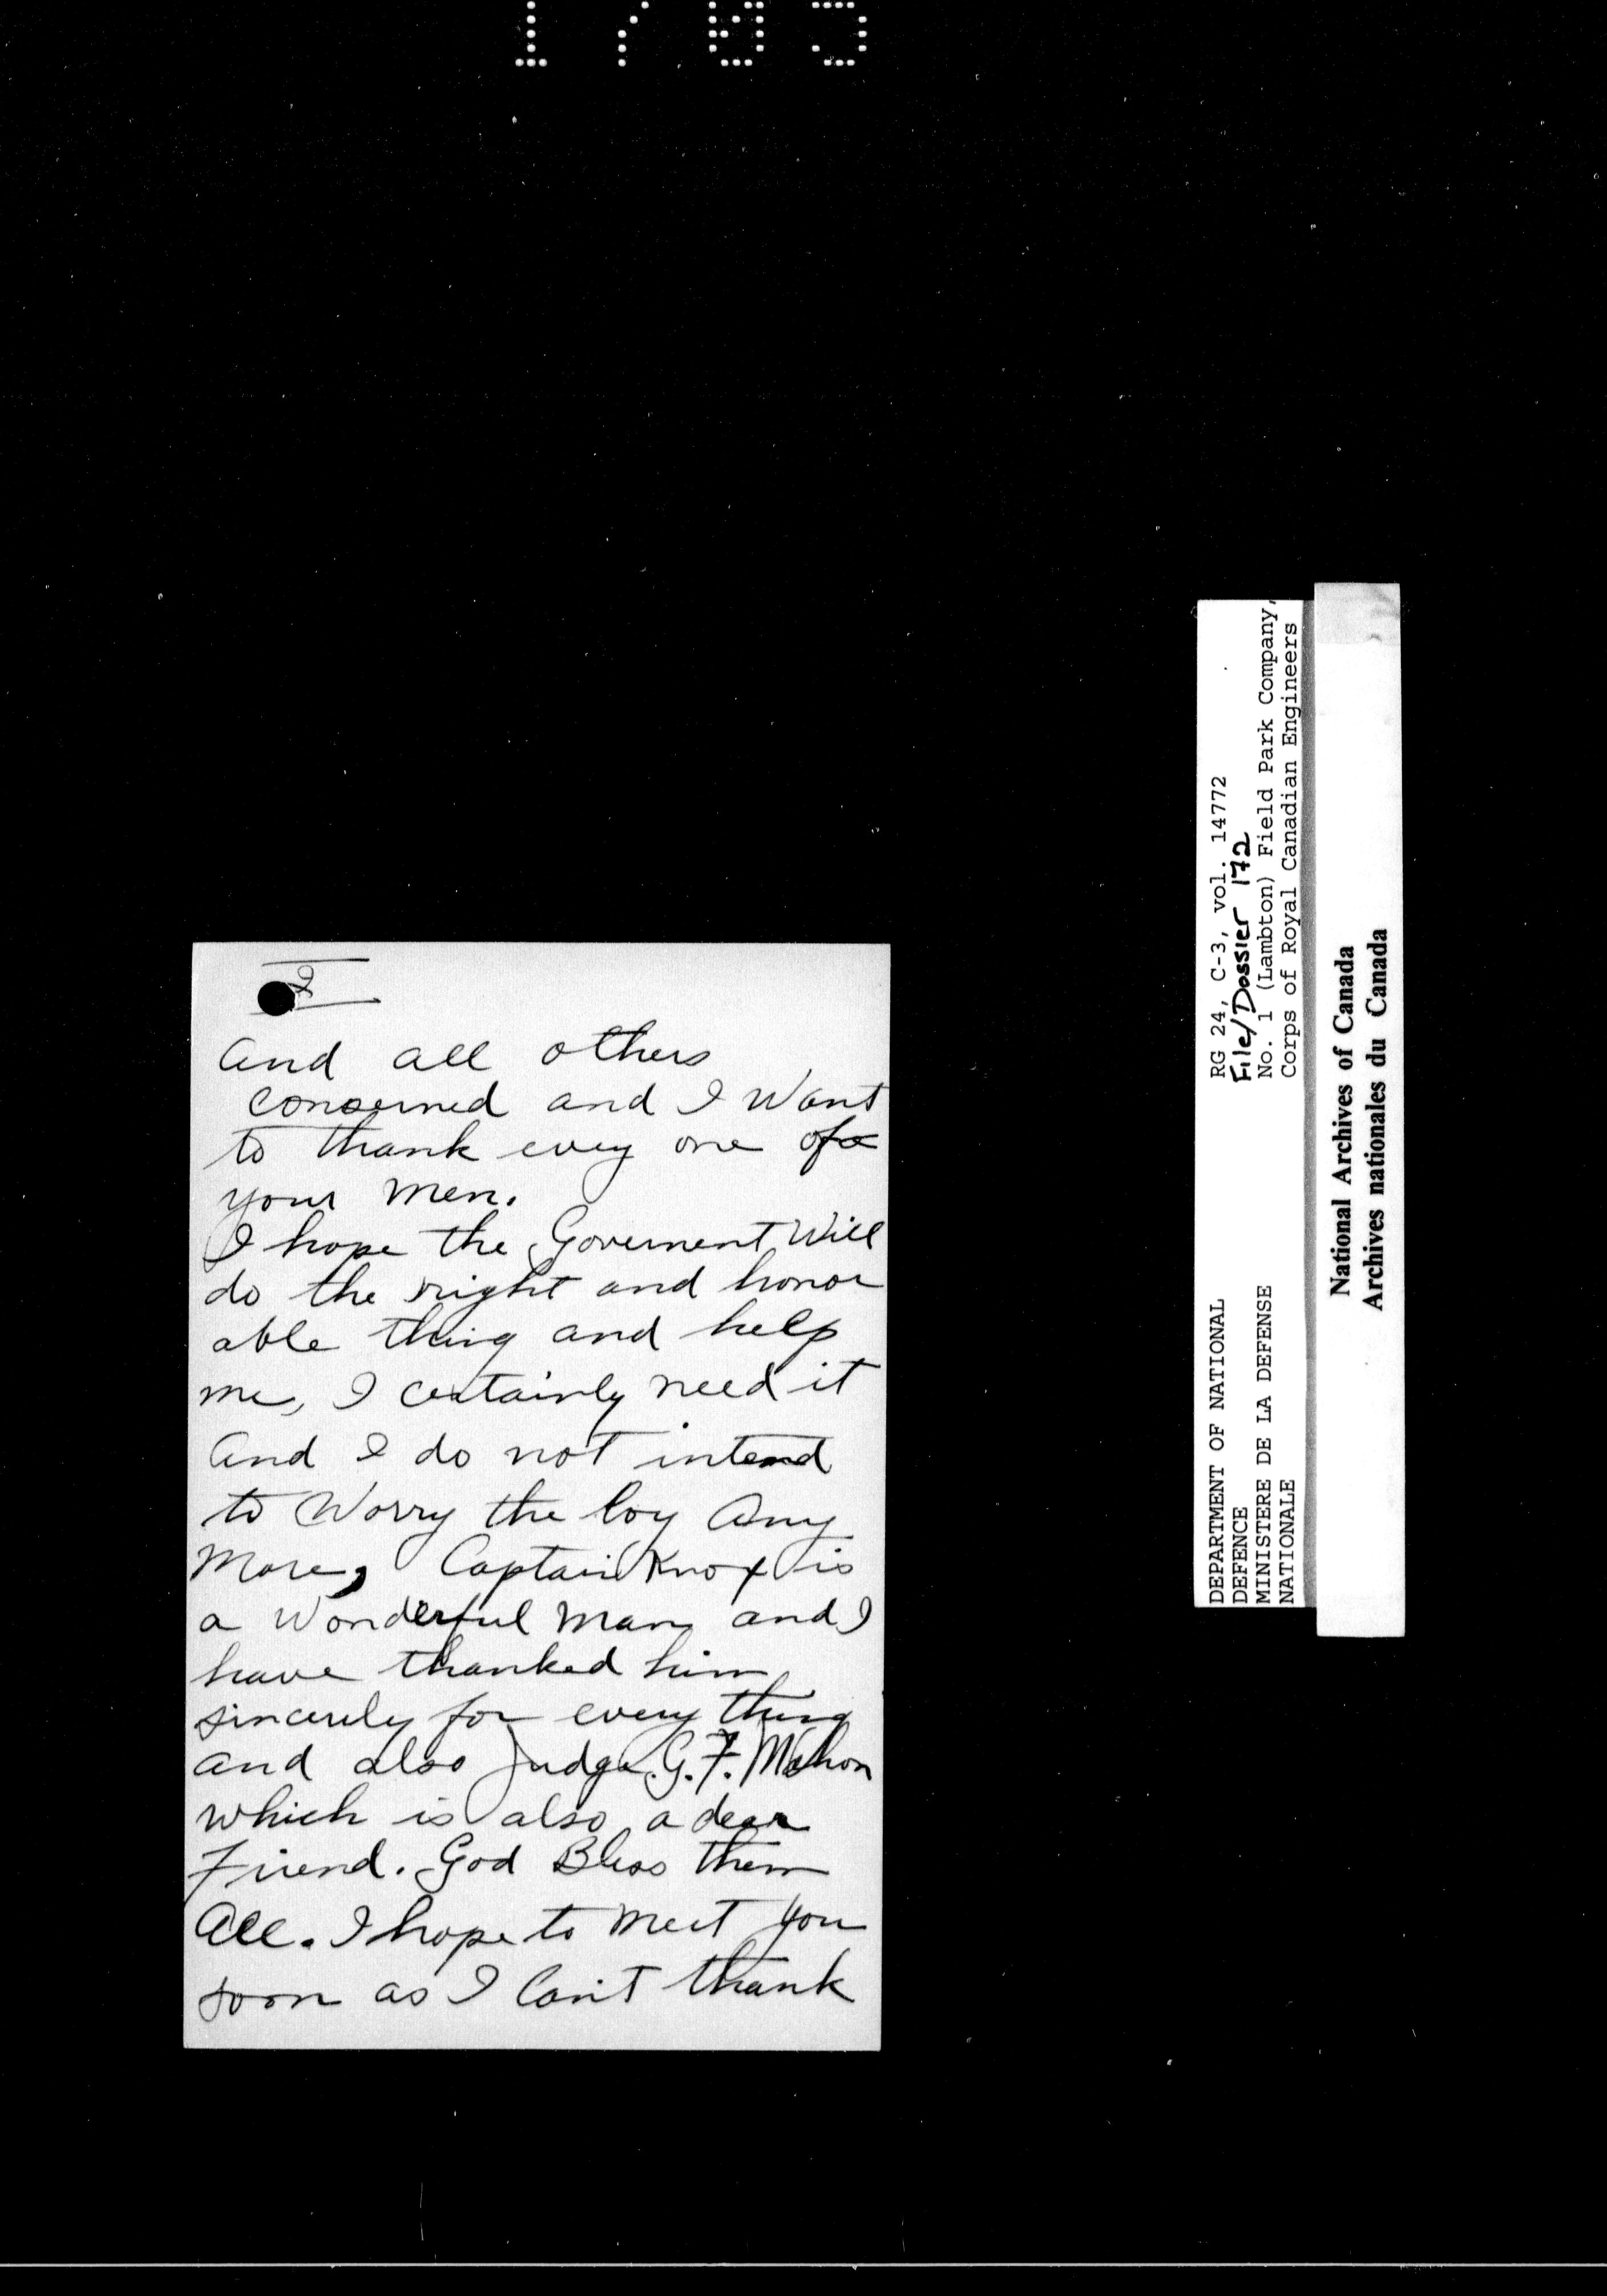 1703
2
And all others
concerned and I Want
to thank evey one of
your Men.
I hope the Goverment Will
do the right and honor
able thing and help
me, I certainly need it
And I do not intend
to Worry the boy Any
More, Captain Knox is
a Wonderful Man and I
have thanked him
sincerely for every thing
and also Judge G.F. Mahon
which is also a dear
Friend. God Bless them
All. I hope to Meet you
soon as I Can't thank
DEPARTMENT OF NATIONAL
DEFENCE
MINISTERE DE LA DEFENSE
NATIONALE
RG 24, C-3, vol. 14772
File/Dossier 172
No. 1 (Lambton) Field Park Company,
Corps of Royal Canadian Engineers
National Archives of Canada
Archives nationales du Canada